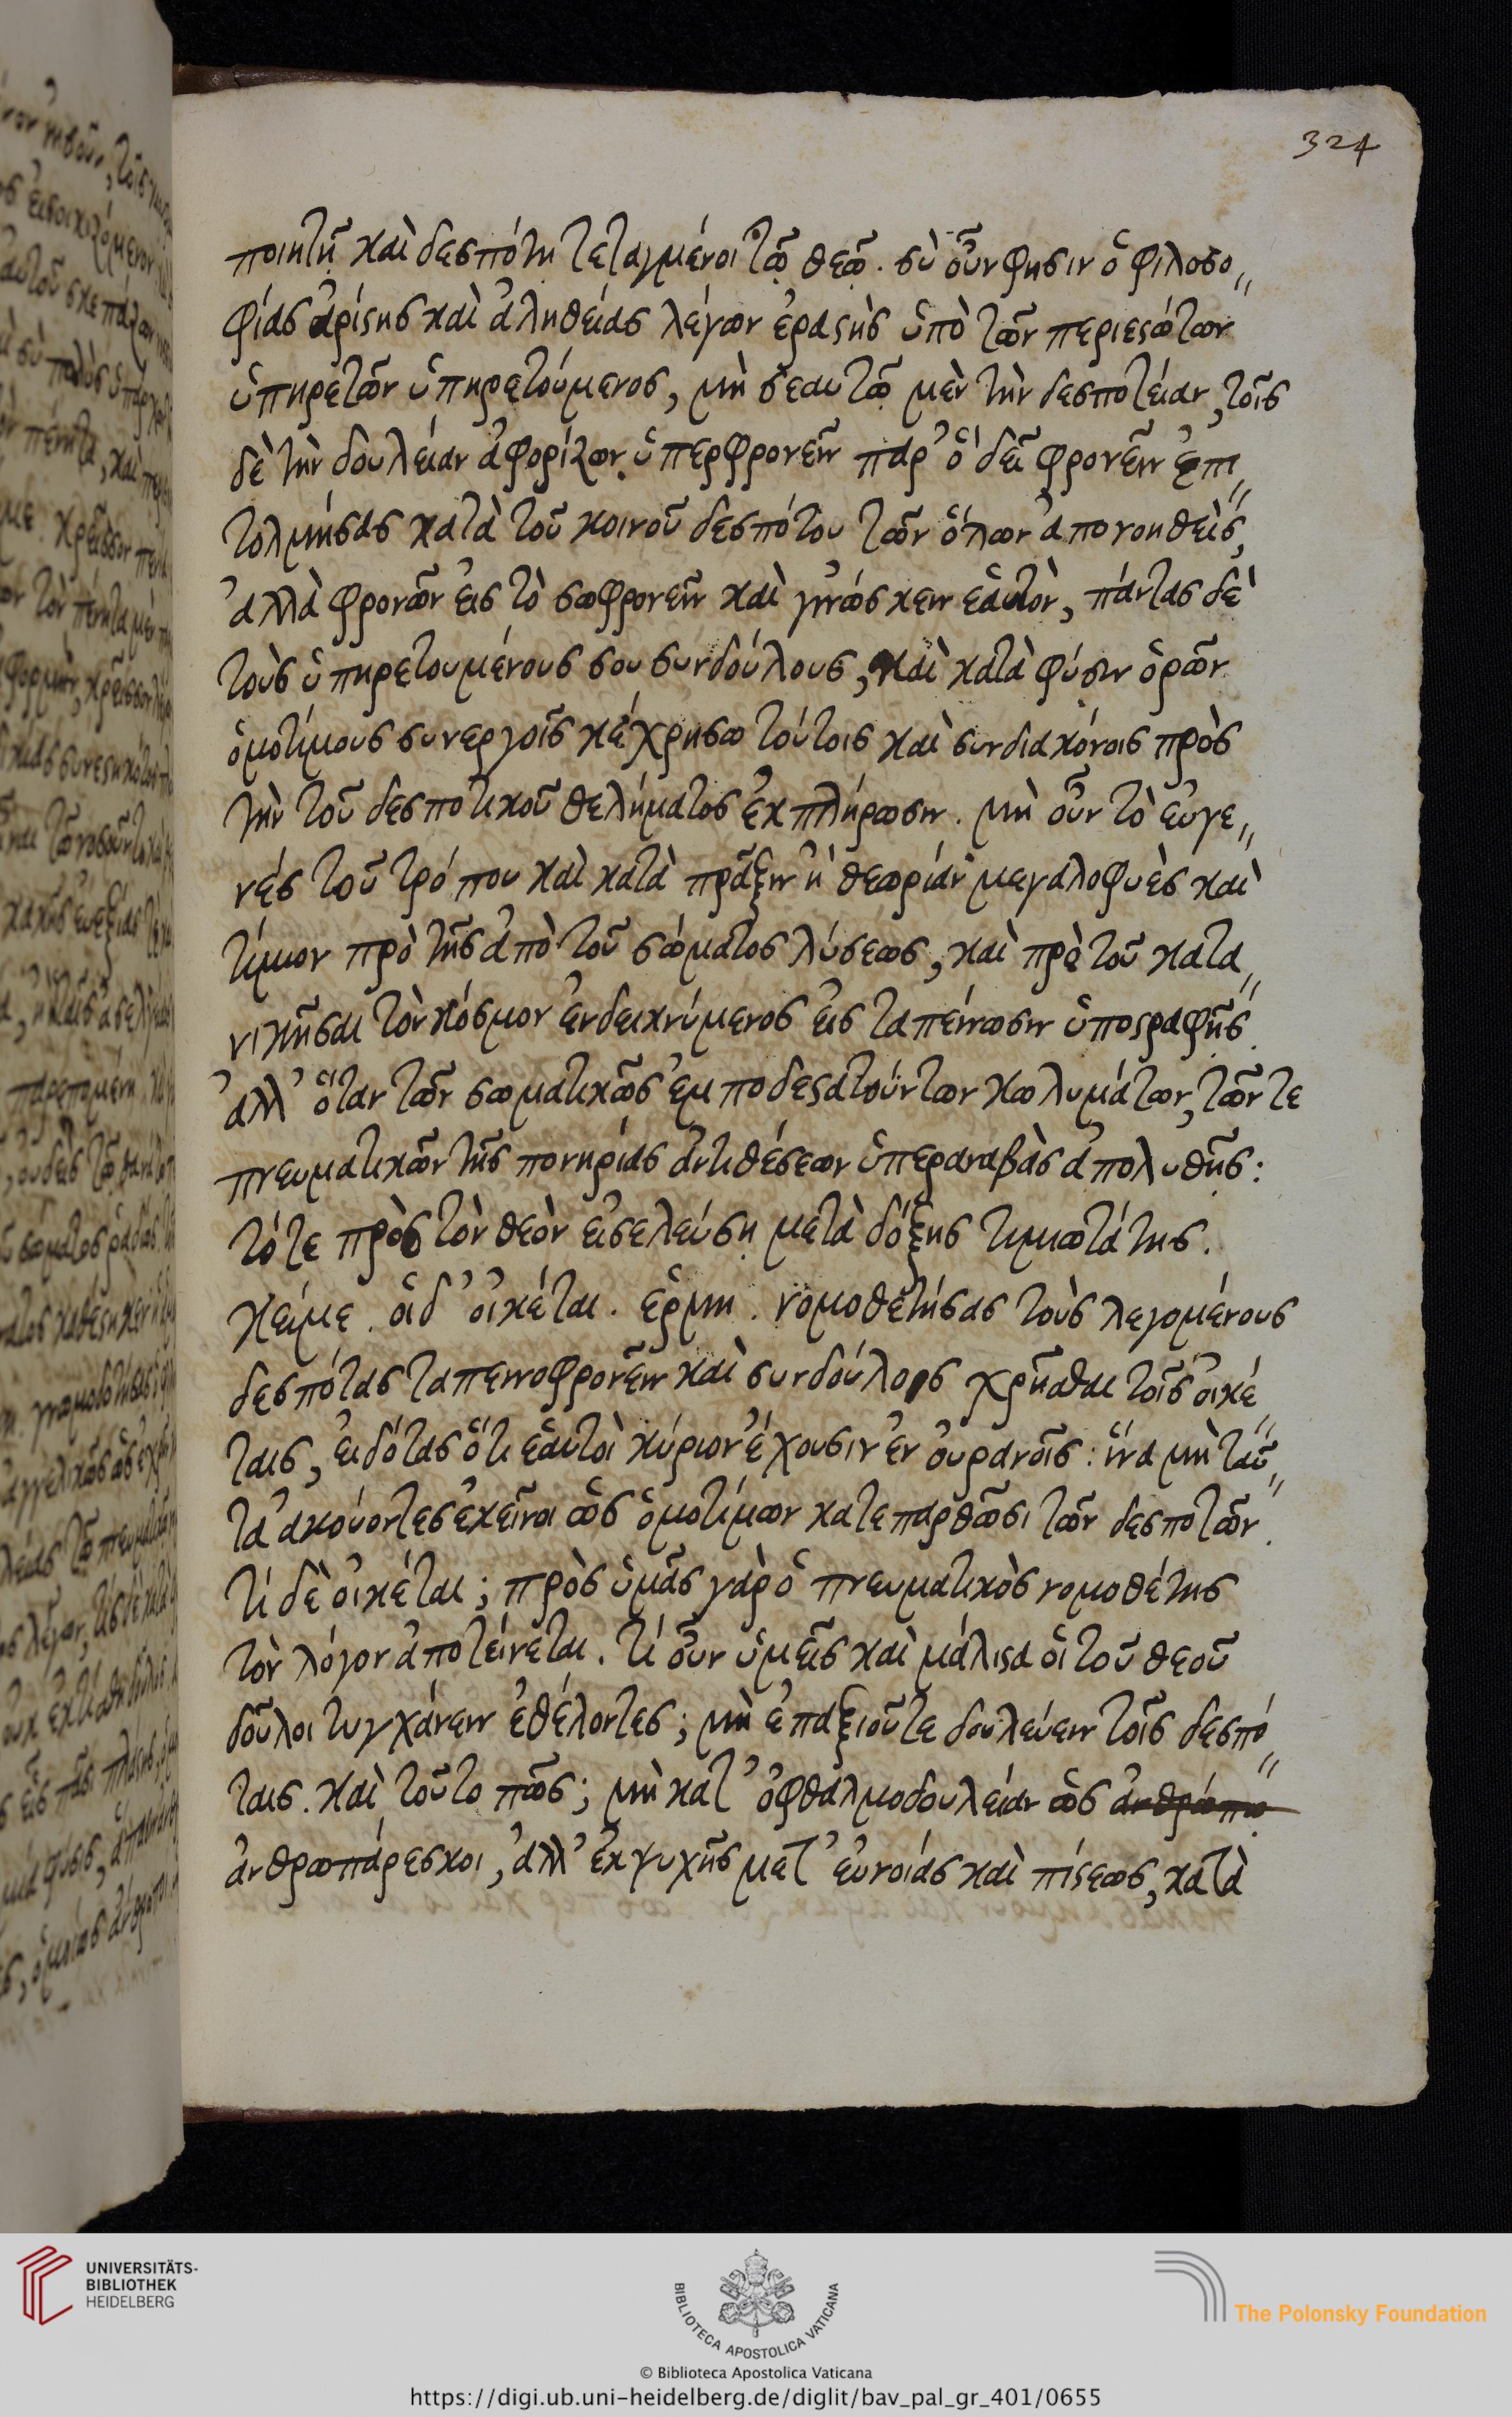 324
ποιητῆ καὶ δεσπότη τεταγμένοι τῶ θεῶ. σὺ οὖν φησιν ὁ φιλοσο〃
φίας ἀρίστης καὶ ἀληθείας λέγων ἐραστὴς ὑπὸ τῶν περιεστώτων
ὑπηρετῶν ὑπηρετούμενος, μὴ σεαυτῶ μὲν τὴν δεσποτείαν, τοῖς
δὲ τὴν δουλείαν ἀφορίζων ὑπερφρονεῖν παρ' ὃ δεῖ φρονεῖν ἐπι〃
τολμήσας κατὰ τοῦ κοινοῦ δεσπότου τῶν ὅλων ἀπονοηθεὶς,
ἀλλὰ φρονῶν εἰς τὸ σωφρονεῖν καὶ γινώσκειν ἑαυτὸν, πάντας δὲ
τοὺς ὑπηρετουμένους σου συνδούλους, καὶ κατὰ φύσιν ὁρῶν
ὁμοτίμους συνεργοῖς κέχρησο τούτοις καὶ συνδιακόνοις πρὸς
τὴν τοῦ δεσποτικοῦ θελήματος ἐκπλήρωσιν. μὴ οὖν τὸ εὐγε〃
νὲς τοῦ τρόπου καὶ κατὰ πρᾶξιν ἢ θεωρίαν μεγαλοφυὲς καὶ
τίμιον πρὸ τῆς ἀπὸ τοῦ σώματος λύσεως, καὶ πρὸ τοῦ κατα〃
νικῆσαι τὸν κόσμον ἐνδεικνύμενος εἰς ταπείνωσιν ὑποστραφῆς.
ἀλλ' ὅταν τῶν σωματικῶς ἐμποδεστατούντων κωλυμάτων, τῶν τε
πνευματικῶν τῆς πονηρίας ἀντιθέσεων ὑπεραναβὰς ἀπολυθῆς:
τότε πρὸς τὸν θεὸν εἰσελεύση μετὰ δόξης τιμιωτάτης.
κείμε. οἱ δ' οἰκέται. ἑρμη. νομοθετήσας τοὺς λεγομένους
δεσπότας ταπεινοφρονεῖν καὶ συνδούλοις χρῆσθαι τοῖς οἰκέ〃
ταις, εἰδότας ὅτι ἑαυτοὶ κύριον ἔχουσιν ἐν οὐρανοῖς: ἵνα μὴ ταῦ〃
τα ἀκούοντες ἐκεῖνοι ὡς ὁμοτίμων κατεπαρθῶσι τῶν δεσποτῶν.
τί δὲ οἰκέται; πρὸς ὑμᾶς γὰρ ὁ πνευματικὸς νομοθέτης
τὸν λόγον ἀποτείνεται. τί οὖν ὑμεῖς καὶ μάλιστα οἱ τοῦ θεοῦ
δοῦλοι τυγχάνειν ἐθέλοντες; μὴ ἐπαξιοῦτε δουλεύειν τοῖς δεσπό〃
ταις. καὶ τοῦτο πῶς; μὴ κατ' ὀφθαλμοδουλείαν ὡς ἀνθρώπω
ἀνθρωπάρεσκοι, ἀλλ' ἐκ ψυχῆς μετ' εὐνοίας καὶ πίστεως, κατὰ
UNIVERSITÄTS-
BIBLIOTHEK
HEIDELBERG
BIBLIOTECA APOSTOLICA VATICANA
The Polonsky Foundation
© Biblioteca Apostolica Vaticana
https://digi.ub.uni-heidelberg.de/diglit/bav_pal_gr_401/0655